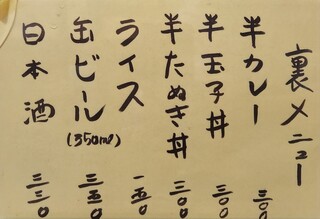 裏メニュー
半カレー 三〇〇
半玉子丼 三〇〇
半たぬき丼 三〇〇
ライス 一五〇
缶ビール(350ml) 三五〇
日本酒 三三〇